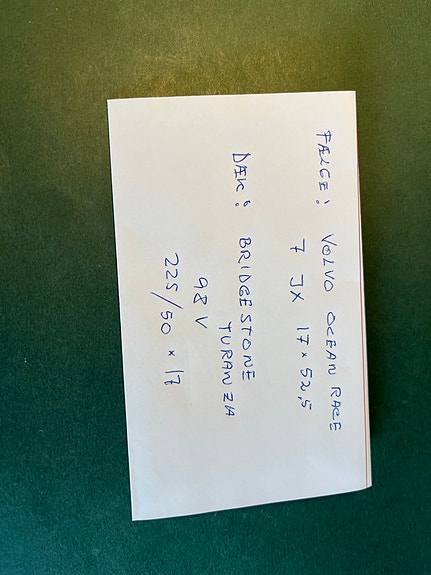 FÆLGE: VOLVO OCEAN RACE
7 JX 17 x 52,5
DÆK: BRIDGESTONE
TURANZA
98 V
225/50 x 17